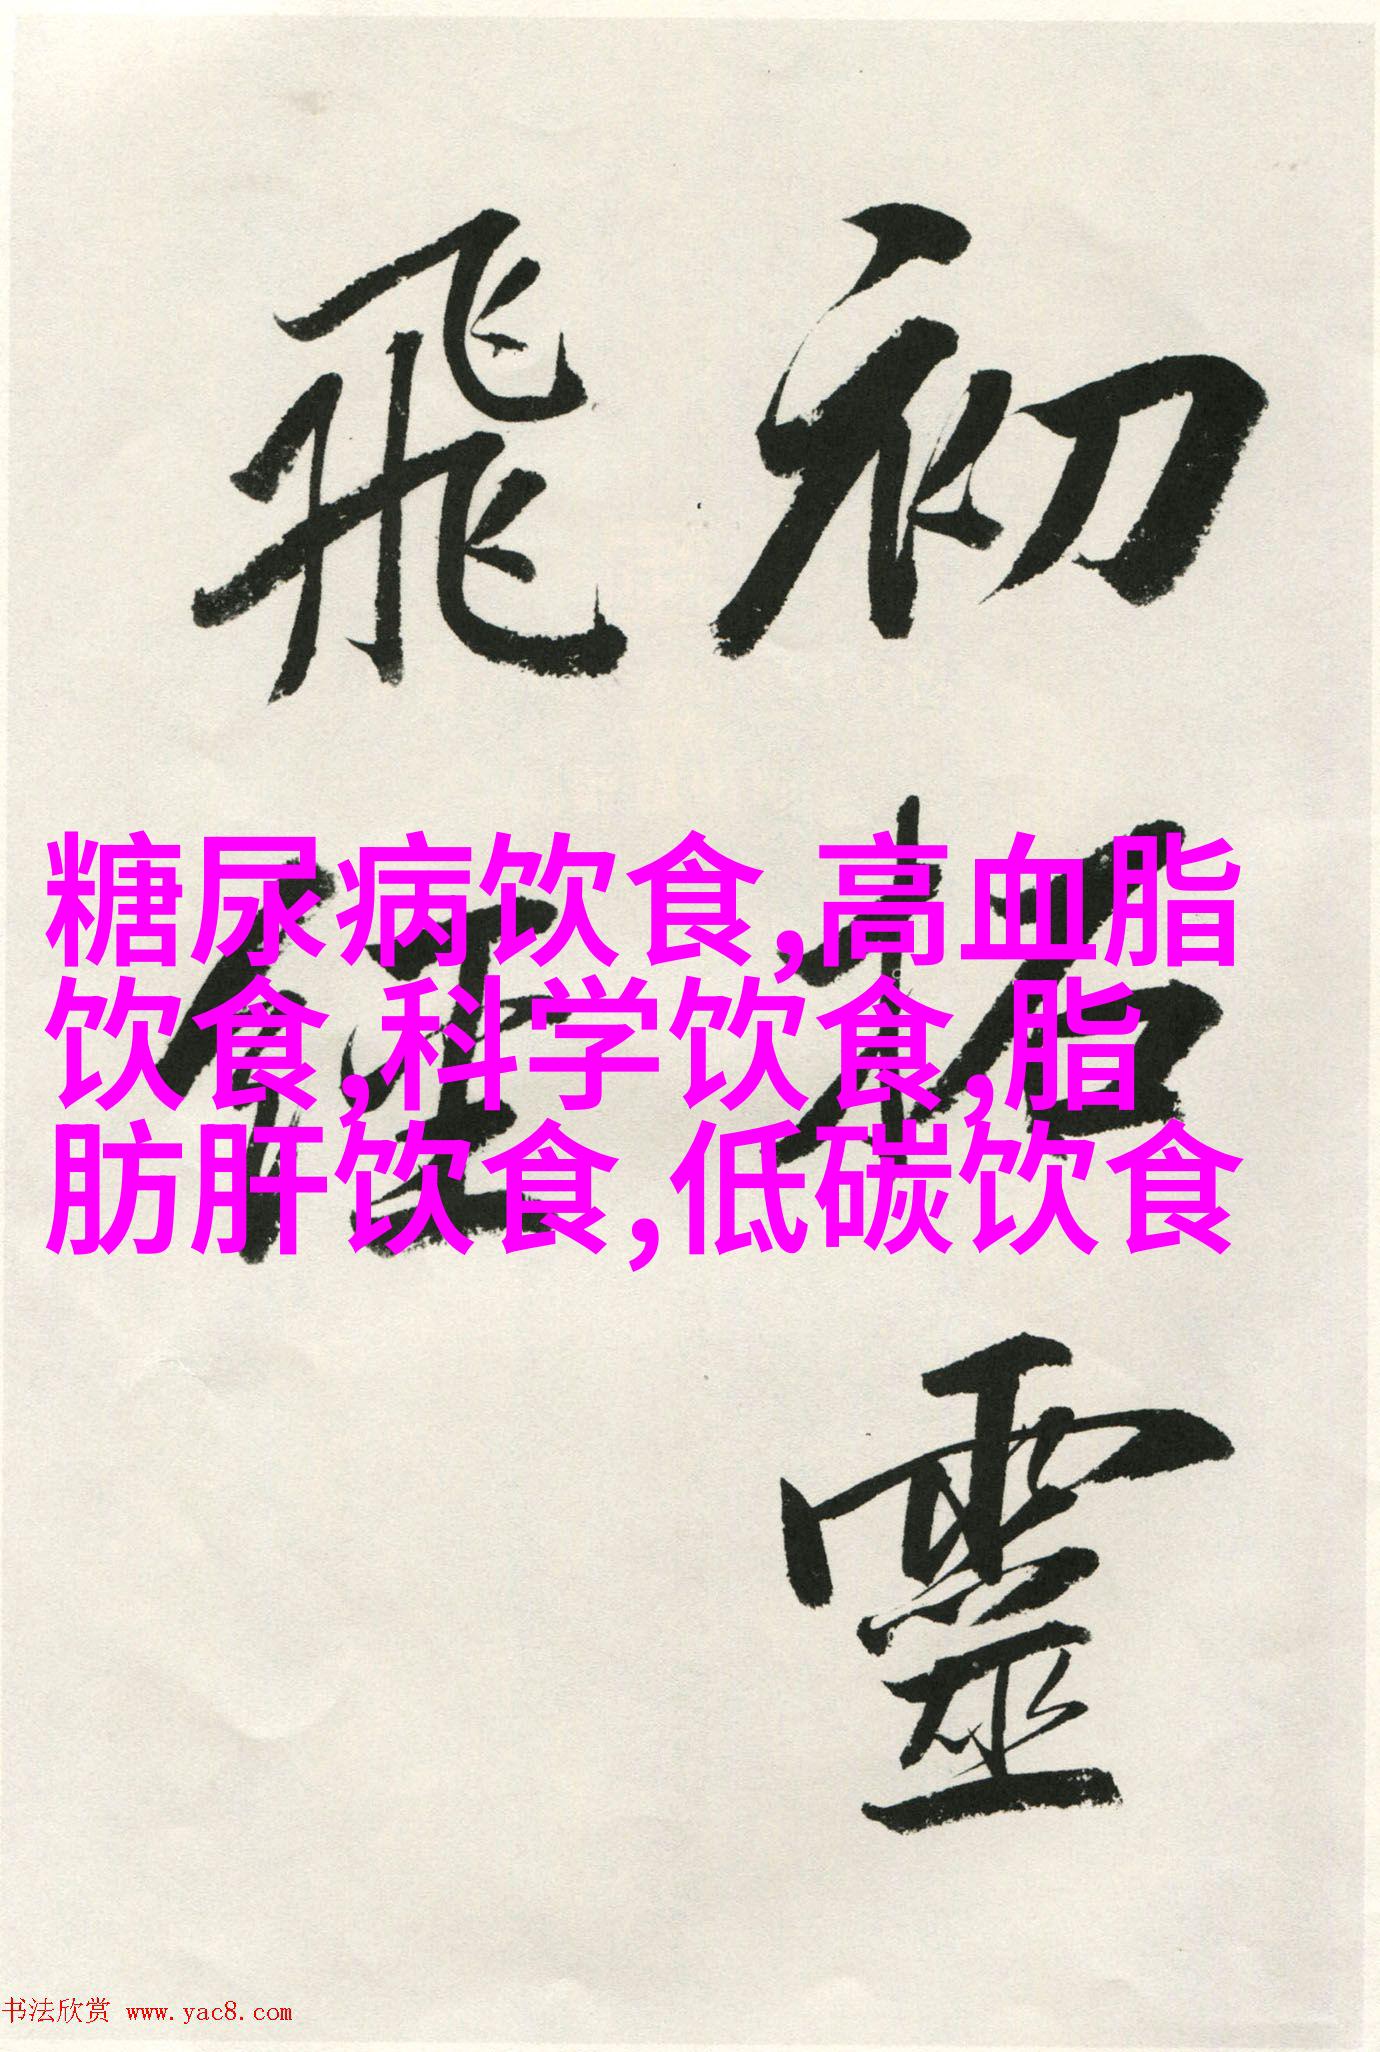 初拓靈
飛經
糖尿病饮食,高血脂
饮食,科学饮食,脂
肪肝饮食,低碳饮食
书法欣赏 www.yac8.com